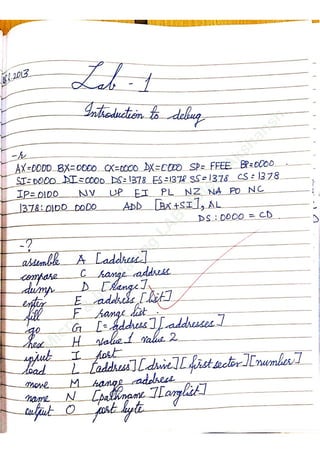 .2013
Lab - 1
Introduction to debug
-r
AX=0000 BX=0000 CX=0000 DX=0000 SP= FFEE BP=0000
SI=0000 DI=0000 DS=1378 ES=1378 SS=1378 CS=1378
IP=0100 NV UP EI PL NZ NA PO NC
1378:0100 0000 ADD [BX+SI], AL
DS:0000 = CD
-?
assemble A [address]
compare C range address
dump D [Range]
enter E address [list]
fill F range list
go G [=address] [addresses]
hex H value1 value2
input I port
load L [address][drive][firstsector][number]
move M range address
name N [pathname][arglist]
output O port byte